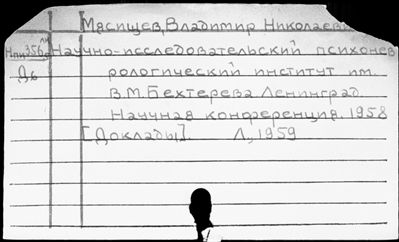 Мясищев, Владимир Николаев
Научно-исследовательский психонев
рологический институт им.
В.М. Бехтерева Ленинград.
Научная конференция. 1958
[Доклады]. Л., 1959